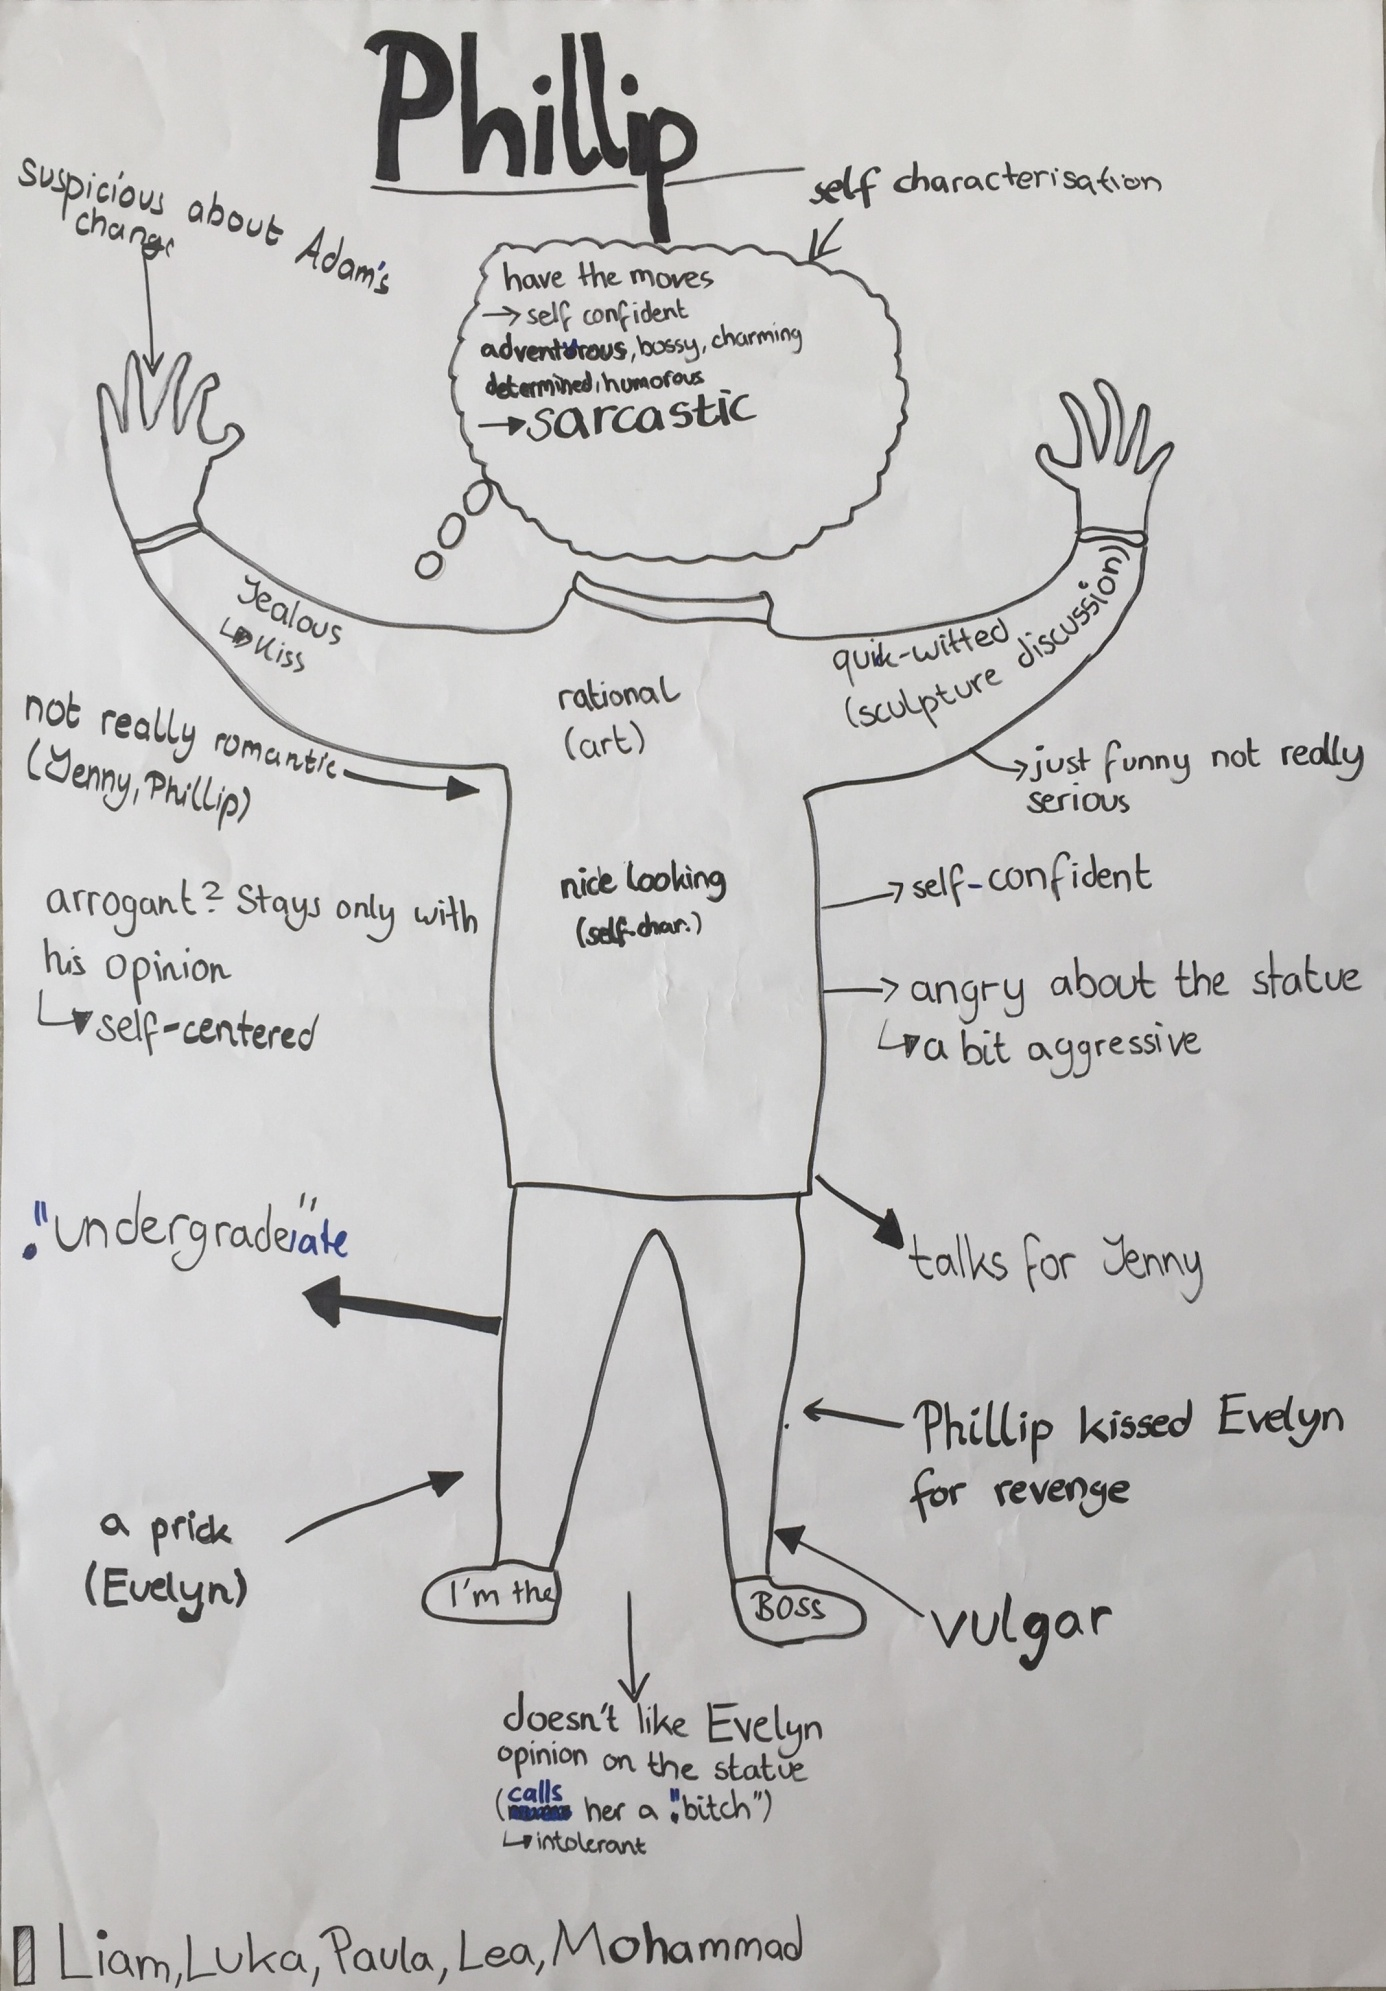 Phillip
self characterisation
suspicious about Adam's
change
have the moves
→ self confident
adventurous, bossy, charming
determined, humorous
→ sarcastic
Jealous
↳ Kiss
quik-witted
(sculpture discussion)
rational
(art)
not really romantic
(Jenny, Phillip)
→ just funny not really
serious
nice looking
(self-char.)
→ self-confident
arrogant? Stays only with
his opinion
↳ self-centered
→ angry about the statue
↳ a bit aggressive
"undergradeiate"
talks for Jenny
Phillip kissed Evelyn
for revenge
a prick
(Evelyn)
I'm the
BOSS
vulgar
doesn't like Evelyn
opinion on the statue
(calls her a "bitch")
↳ intolerant
Liam, Luka, Paula, Lea, Mohammad